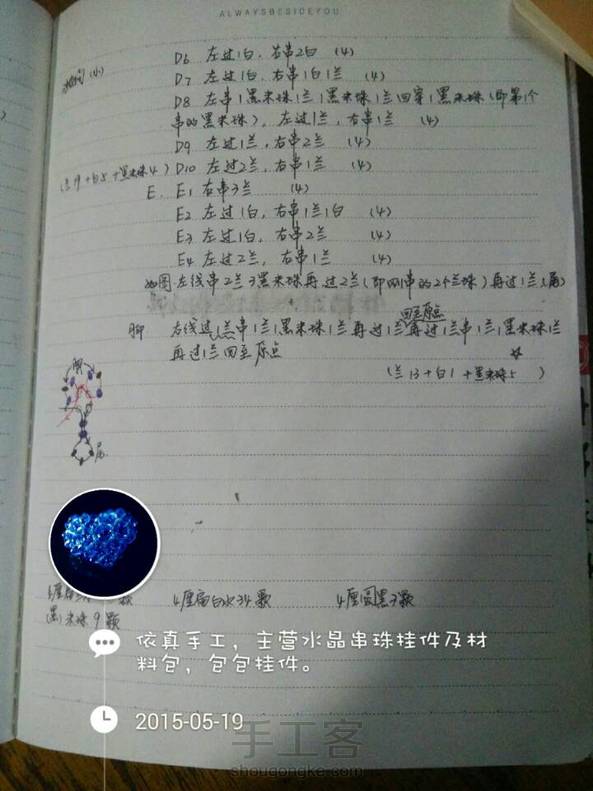 ALWAYSBESIDEYOU
D6 左过1白，右串2白 (4)
D7 左过1白，右串1白1兰 (4)
D8 左串1黑米珠1兰1黑米珠1兰回穿1黑米珠(即第1个
串的黑米珠)，左过1兰，右串1兰 (4)
D9 左过1兰，右串2兰 (4)
D10 左过2兰，右串1兰 (4)
E. E1 右串3兰 (4)
E2 左过1白，右串1兰1白 (4)
E3 左过1白，右串2兰 (4)
E4 左过2兰，右串1兰 (4)
如图:左线串2兰3黑米珠再过2兰(即刚串的2个兰珠)再过1兰(尾)
回至原点
脚 右线过1兰串1兰1黑米珠1兰再过1兰再过1兰串1兰1黑米珠1兰
再过1兰回至原点 ☆
(兰13+白1+黑米珠5)
脚
尾
4厘扁白水34颗 4厘圆黑3颗
黑米珠9颗
依真手工，主营水晶串珠挂件及材
料包，包包挂件。
2015-05-19
手工客
shougongke.com